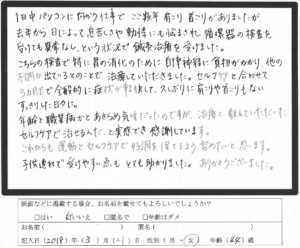 1日中パソコンに向かう仕事で ここ数年 肩こり 首こりがありましたが
去年から 日によって、息苦しさや動悸にも悩まされ 循環器の検査を
受けても異常なし、という状況で 鍼灸治療を受けました。
こちらの検査で 特に胃の消化のために 自律神経に負担がかかり、他の
不調が出ているとのことで 治療していただきました。セルフケアと合わせて
3カ月ほどで全般的に症状が軽快して、久しぶりに肩こりや首こりもない
すっきりした日々に。
年齢と職業病かとあきらめ気味だったのですが、治療と教えていただいた
セルフケアで治せるんだ、と実感でき 感謝しています。
これからも 運動とセルフケアで好調を保てるよう 努めたいと思います。
子供連れで受けやすい点も とても助かりました。ありがとうございました。
紙面などに掲載する場合、お名前を載せてもよろしいでしょうか？
□はい ☑いいえ □匿名で □年齢はダメ
お名前( ) 匿名( )
記入日(2018)年(3)月( )日 性別(男・女) 年齢( )歳